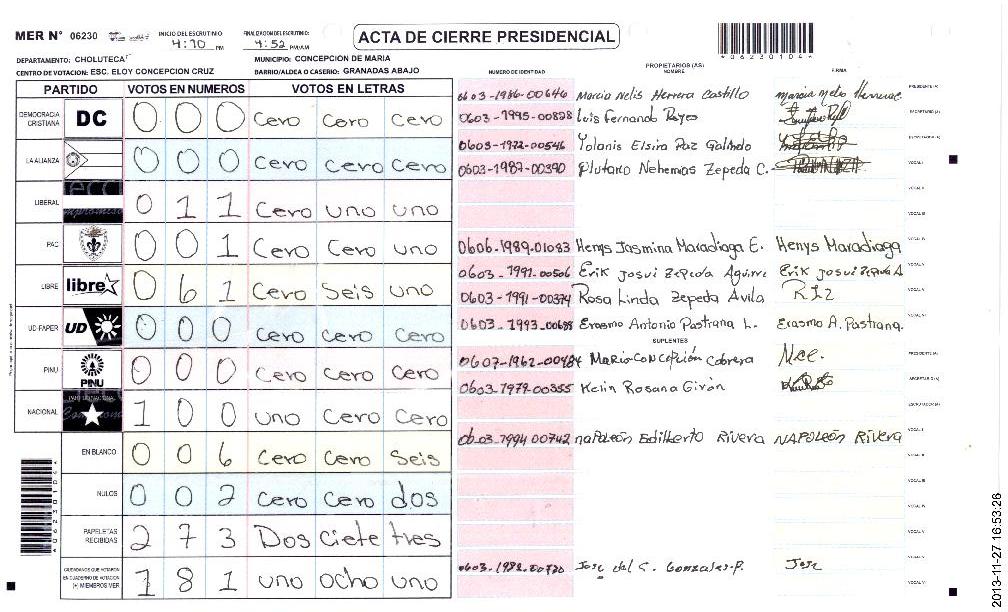 MER N° 06230
INICIO DEL ESCRUTINIO
4:10 PM
FINALIZACION DEL ESCRUTINIO
4:52 PM/AM
ACTA DE CIERRE PRESIDENCIAL
*06230104*
DEPARTAMENTO: CHOLUTECA
MUNICIPIO: CONCEPCION DE MARIA
CENTRO DE VOTACION: ESC. ELOY CONCEPCION CRUZ
BARRIO/ALDEA O CASERIO: GRANADAS ABAJO
NUMERO DE IDENTIDAD
PROPIETARIOS (AS)
NOMBRE
FIRMA
PARTIDO VOTOS EN NUMEROS VOTOS EN LETRAS
DEMOCRACIA CRISTIANA DC 0 0 0 Cero Cero Cero
LA ALIANZA 0 0 0 Cero Cero Cero
LIBERAL 0 1 1 Cero uno uno
PAC 0 0 1 Cero Cero uno
LIBRE libre 0 6 1 Cero Seis uno
UD-FAPER UD 0 0 0 Cero Cero Cero
PINU PINU 0 0 0 Cero Cero Cero
NACIONAL 1 0 0 uno Cero Cero
EN BLANCO 0 0 6 Cero Cero Seis
NULOS 0 0 2 Cero Cero dos
PAPELETAS RECIBIDAS 2 7 3 Dos Ciete tres
CIUDADANOS QUE VOTARON EN CUADERNO DE VOTACION (+) MIEMBROS MER 1 8 1 uno ocho uno
0603-1986-00646 Marcia Nelis Herrera Castillo
PRESIDENTE (A)
0603-1995-00828 Luis Fernando Reyes
SECRETARIO (A)
0603-1972-00546 Yolanis Elsira Paz Galindo
ESCRUTADOR (A)
0603-1987-00390 Plutarco Nehemias Zepeda C.
VOCAL I
VOCAL II
VOCAL III
0606-1989-01083 Henys Jasmina Maradiaga E. Henys Maradiaga
VOCAL IV
0603-1991-00506 Erik Josui Zepeda Aguirre Erik Josui Zepeda A
VOCAL V
0603-1991-00374 Rosa Linda Zepeda Avila RLZ
VOCAL VI
0603-1993-00688 Erasmo Antonio Pastrana L. Erasmo A. Pastrana.
SUPLENTES
0607-1962-00484 Mario Concepción Cabrera
PRESIDENTE (A)
0603-1979-00355 Kelin Rosana Girón
SECRETARIO (A)
ESCRUTADOR (A)
0603-1994 00742 napoleón Edilberto Rivera NAPOLEÓN RIVERA
VOCAL I
VOCAL II
VOCAL III
VOCAL IV
VOCAL V
0603-1988-00720 Jose del C. Gonzales P. Jose
VOCAL VI
*06230104*
2013-11-27 16:53:26